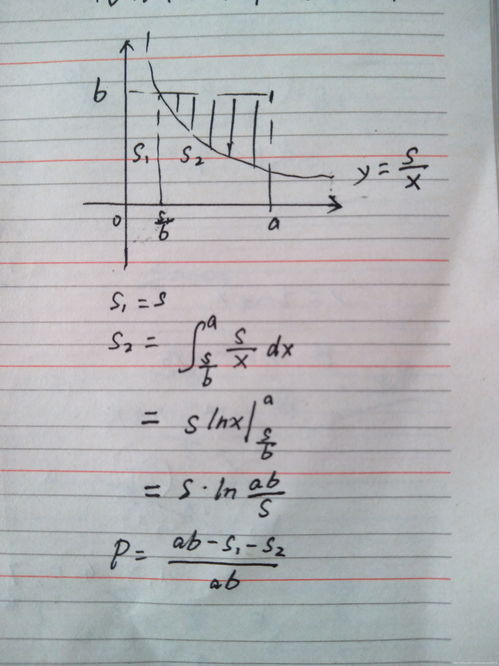 b
S₁ S₂
y = s/x
0 s/b a
S₁ = s
S₂ = ∫_{s/b}^{a} s/x dx
= s lnx |_{s/b}^{a}
= s · ln ab/s
P = (ab - S₁ - S₂)/ab